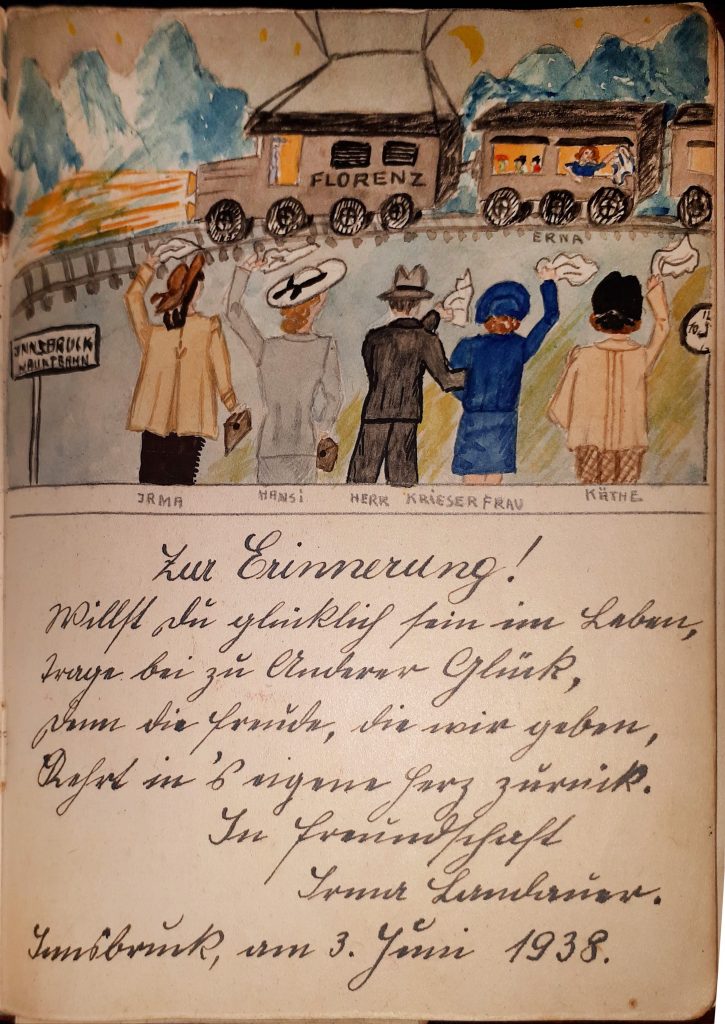 FLORENZ
ERNA
INNSBRUCK
HAUPTBAHN
IRMA HANSI HERR KRIESER FRAU KÄTHE
Zur Erinnerung!
Willst Du glücklich sein im Leben,
trage bei zu Anderer Glück,
Denn die Freude, die wir geben,
Kehrt in's eigene Herz zurück.
In Freundschaft
Irma Landauer.
Innsbruck, am 3. Juni 1938.